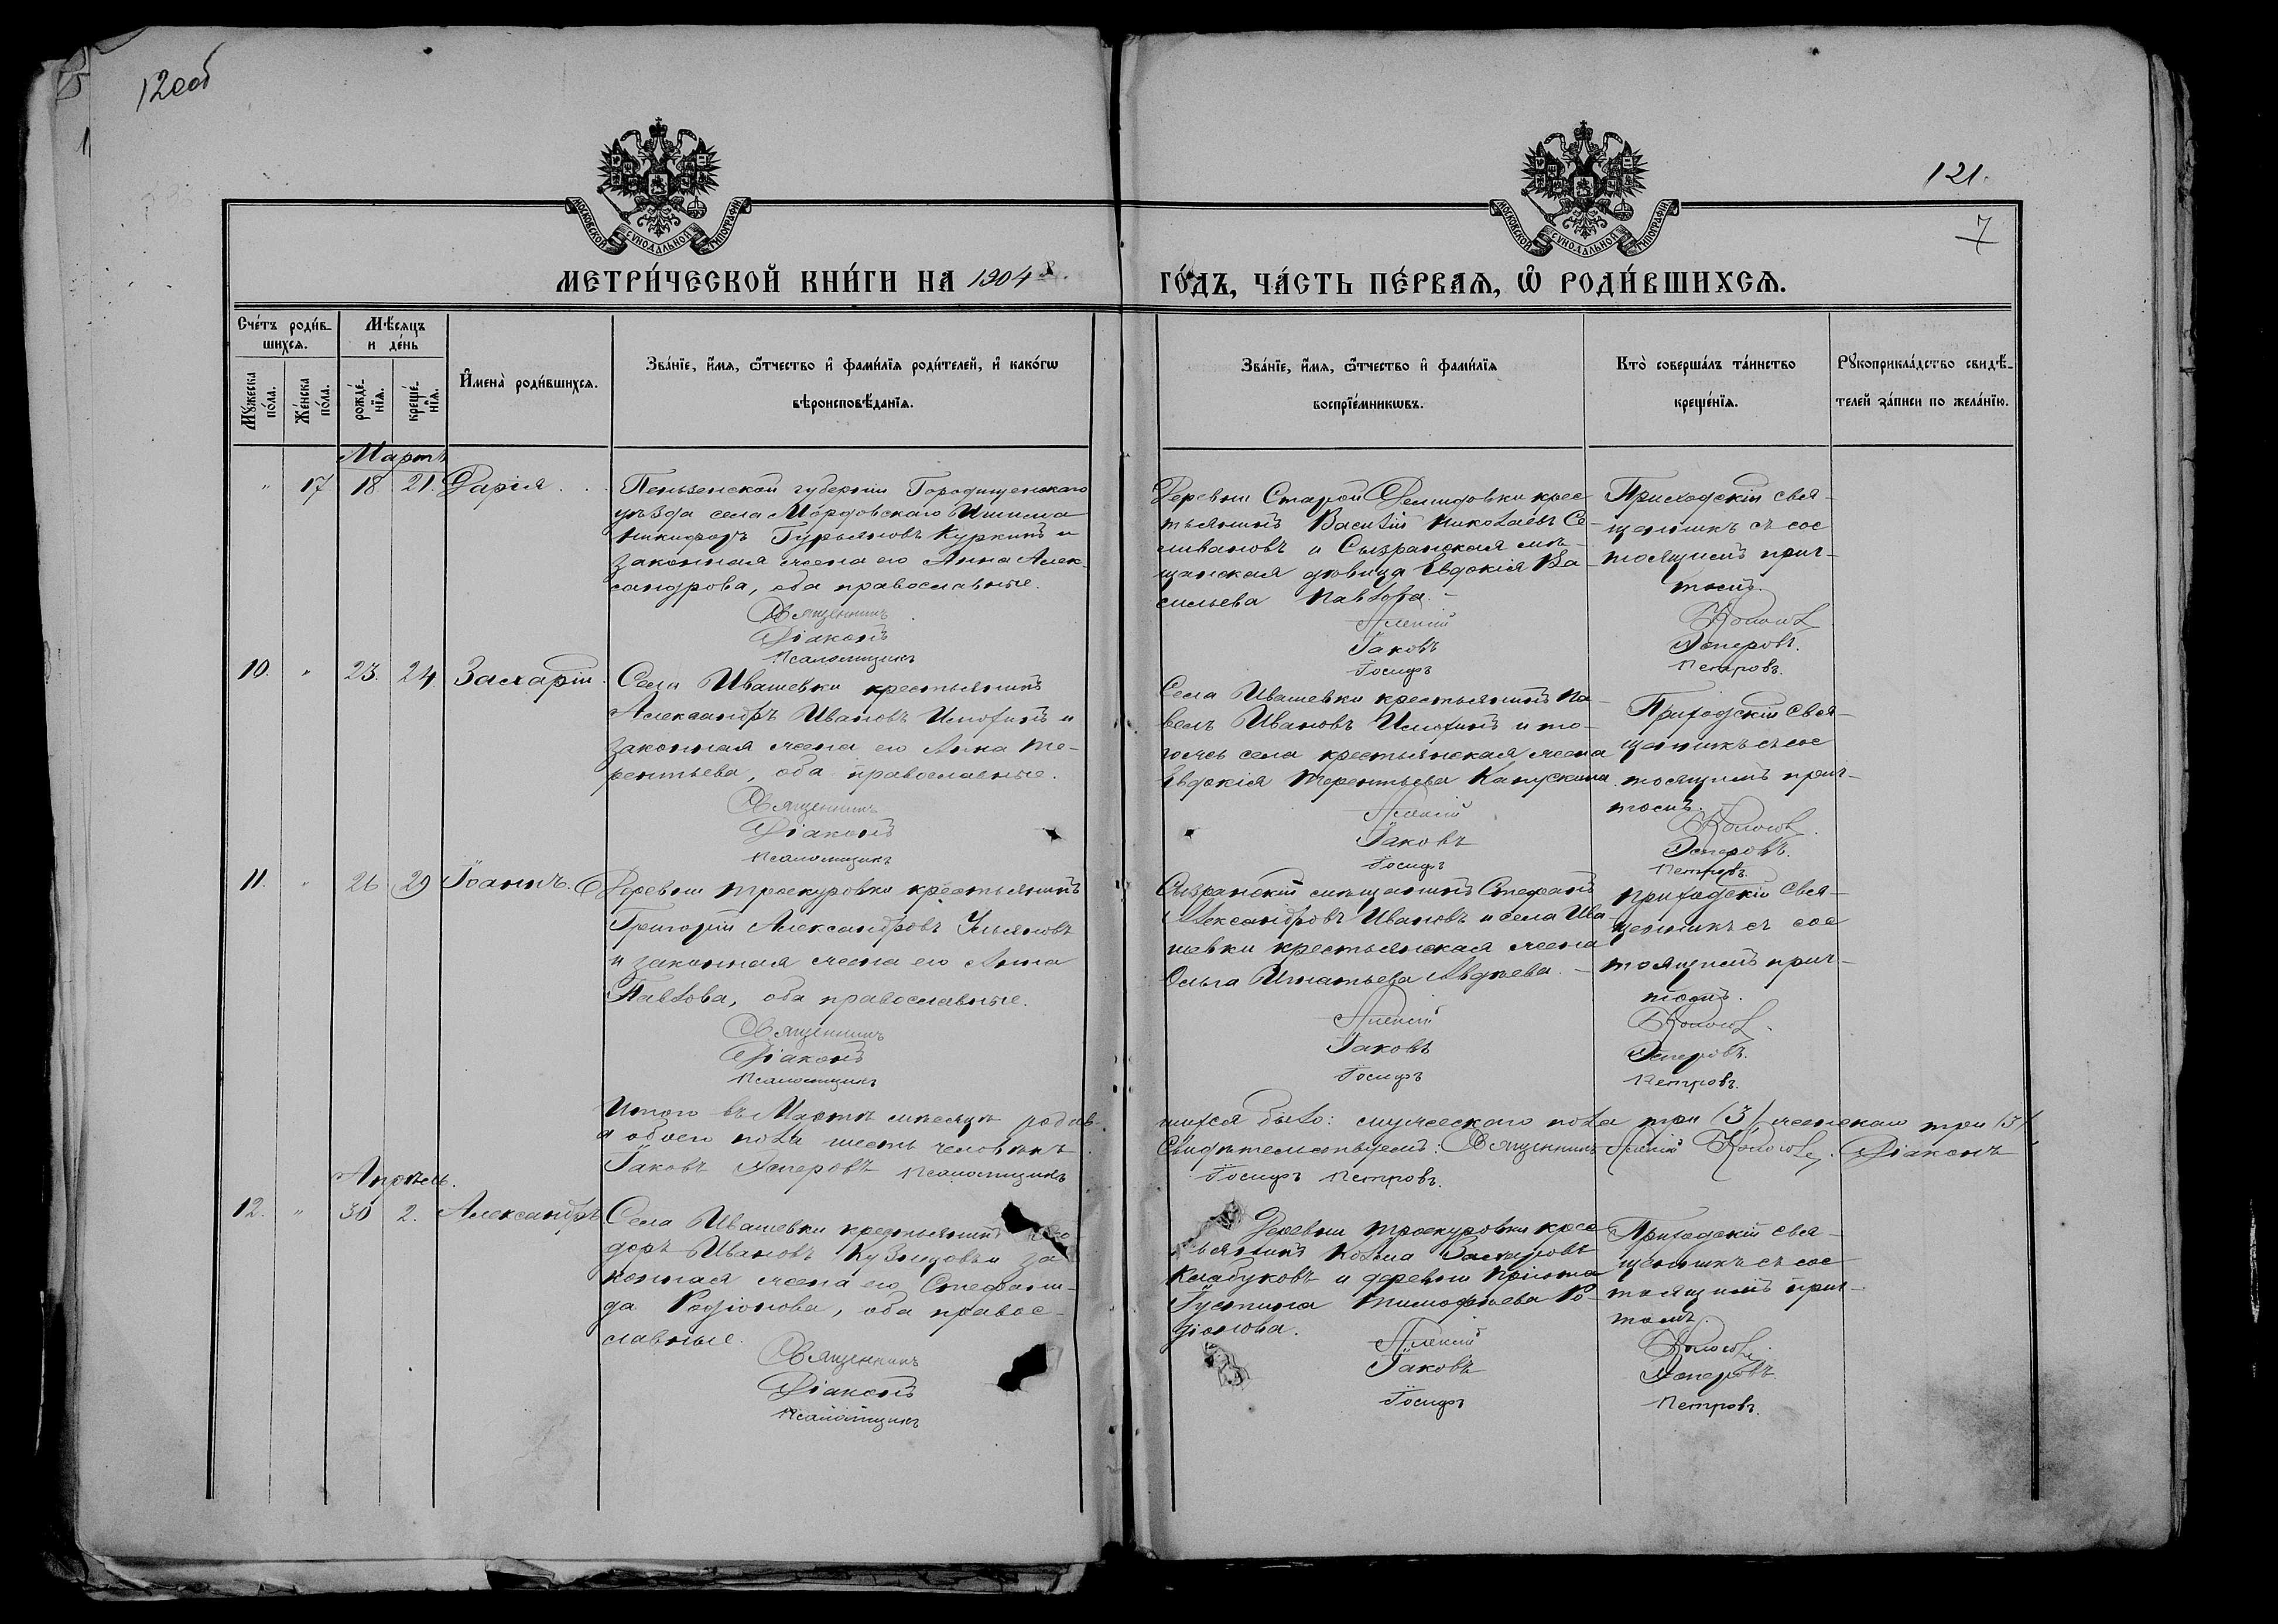 120об
121.
7
МОСКОВСКОЙ СѴНОДАЛЬНОЙ ТИПОГРАФІИ
МОСКОВСКОЙ СѴНОДАЛЬНОЙ ТИПОГРАФІИ
МЕТРИ́ЧЕСКОЙ КНИ́ГИ НА 1904 й. ГО́ДЪ, ЧА́СТЬ ПЕ́РВАѦ, Ѡ҆ РОДИ́ВШИХСѦ.
Сче́тъ роди́в-
шихсѧ.
Мѣ́сѧцъ
и де́нь
Мꙋ́жеска по́ла.
Же́нска по́ла.
рожде́-нїѧ.
креще́-нїѧ.
И҆мена̀ роди́вшихсѧ.
Зва́нїе, и҆́мѧ, ѻ҆́тчество и҆ фами́лїѧ роди́телей, и҆ како́гѡ
вѣроисповѣ́данїѧ.
Зва́нїе, и҆́мѧ, ѻ҆́тчество и҆ фами́лїѧ
воспрїе́мникѡвъ.
Кто̀ соверша́лъ та́инство
креще́нїѧ.
Рꙋкоприкла́дство свидѣ́-
телей за́писи по жела́нїю.
Мартъ
" 17 18 21. Дарія
Пензенской губерніи Городищенскаго
уѣзда села Мордовскаго Ишима
Никифоръ Гурьяновъ Куркинъ и
законная жена его Анна Алек-
сандрова, оба православные.
Священникъ
Діаконъ
Псаломщикъ
Деревни Старой Демидовки крес
тьянинъ Василій Николаевъ Се-
ливановъ и Сызранская мѣ-
щанская дѣвица Евдокія Ва-
сильева Павлова.
Алексій
Іаковъ
Іосифъ
Приходскій свя-
щенникъ съ сос
тоящимъ прич-
томъ.
Колосов
Асперовъ.
Петровъ.
10. " 23. 24. Захарій.
Села Ивашевки крестьянинъ
Александръ Ивановъ Илюхинъ и
законная жена его Анна Те-
рентьева, оба православные.
Священникъ
Діаконъ
Псаломщикъ
Села Ивашевки крестьянинъ Па-
велъ Ивановъ Илюхинъ и то-
гожъ села крестьянская жена
Евдокія Терентьева Капускина.
Алексій
Іаковъ
Іосифъ
Приходскій свя-
щенникъ съ сос
тоящимъ прич-
томъ.
Колосов
Асперовъ.
Петровъ.
11. " 26 29 Іоаннъ.
Деревни Троекуровки крестьянинъ
Григорій Александровъ Ульяновъ
и законная жена его Анна
Павлова, оба православные.
Священникъ
Діаконъ
Псаломщикъ
Сызранскій мѣщанинъ Стефанъ
Александровъ Ивановъ и села Ива-
шевки крестьянская жена
Ольга Игнатьева Авдѣева.
Алексій
Іаковъ
Іосифъ
Приходскій свя-
щенникъ съ сос
тоящимъ прич-
томъ.
Колосов
Асперовъ.
Петровъ.
Итого въ Мартѣ мѣсяцѣ родив-шихся было: мужескаго пола три (3) женскаго три (3)
а обоего пола шесть человѣкъ Свидѣтельствуемъ: Священникъ Алексій Колосов. Діаконъ
Іаковъ Асперовъ Псаломщикъ Іосифъ Петровъ.
Апрѣль.
12. " 30 2. Александръ
Села Ивашевки крестьянинъ
доръ Ивановъ Кузнецовъ и за
конная жена его Стефани-
да Родіонова, оба правос-
славные.
Священникъ
Діаконъ
Псаломщикъ
Деревни Троекуровки крес
тьянинъ Козьма Захаровъ
Клабуковъ и деревни
Іустина Тимофѣева Ро-
діонова.
Алексій
Іаковъ
Іосифъ
Приходскій свя-
щенникъ съ сос
тоящимъ прич-
томъ.
Колосов
Асперовъ.
Петровъ.